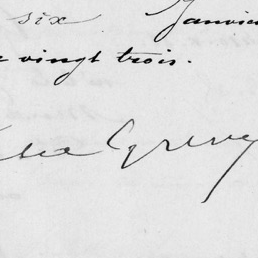 six Janvier
vingt trois.
Grévy